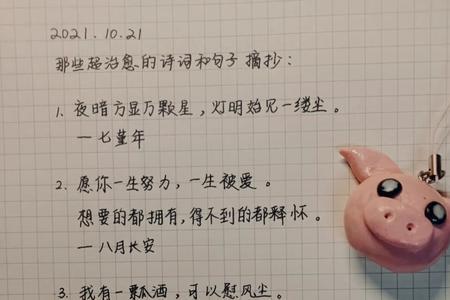 2021.10.21
那些超治愈的诗词和句子摘抄：
1. 夜暗方显万颗星，灯明始见一缕尘。
— 七堇年
2. 愿你一生努力，一生被爱。
想要的都拥有，得不到的都释怀。
— 八月长安
3. 我有一瓢酒，可以慰风尘。